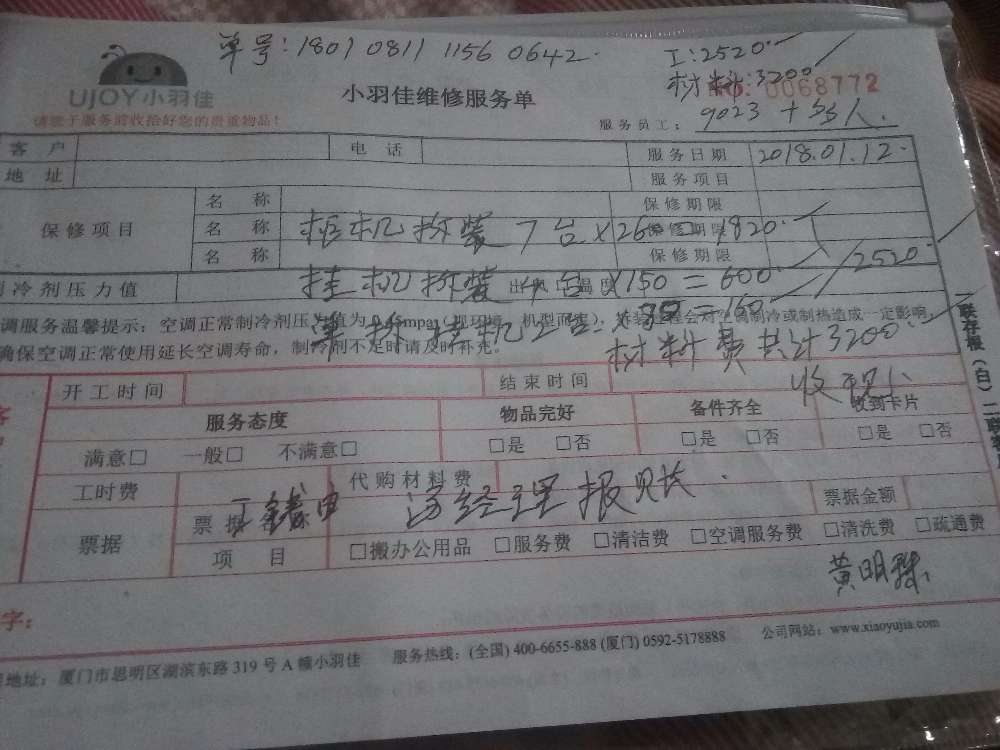 单号:18010811 1156 0642.
工:2520.
材料:3200
UJOY小羽佳
小羽佳维修服务单
No:0068772
请您于服务前收拾好您的贵重物品!
服务员工: 9023 + 55人.
客 户 电 话 服务日期 2018.01.12.
地 址 服务项目
名 称 保修期限
保修项目 名 称 柜机拆装 7台×260=1820. 保修期限
名 称 保修期限
制冷剂压力值 挂机拆装 4台×150=600. 2520
空调服务温馨提示:空调正常制冷剂压力值为 mpa(视环境、机型而定),拆装过程会对空调制冷或制热造成一定影响
单拆挂机2台×80=160
确保空调正常使用延长空调寿命,制冷剂不足时请及时补充。
材料费共计3200.
开工时间 结束时间
收现
服务态度 物品完好 备件齐全 收到卡片
满意□ 一般□ 不满意□ □是 □否 □是 □否 □是 □否
工时费 代购材料费
票据 票据 汤经理报账. 票据金额
项 目 □搬办公用品 □服务费 □清洁费 □空调服务费 □清洗费 □疏通费
黄明珠
字:
地址:厦门市思明区湖滨东路 319 号 A 幢小羽佳 服务热线:(全国) 400-6655-888 (厦门) 0592-5178888 公司网站:www.xiaoyujia.com
一联存根(白)二联客